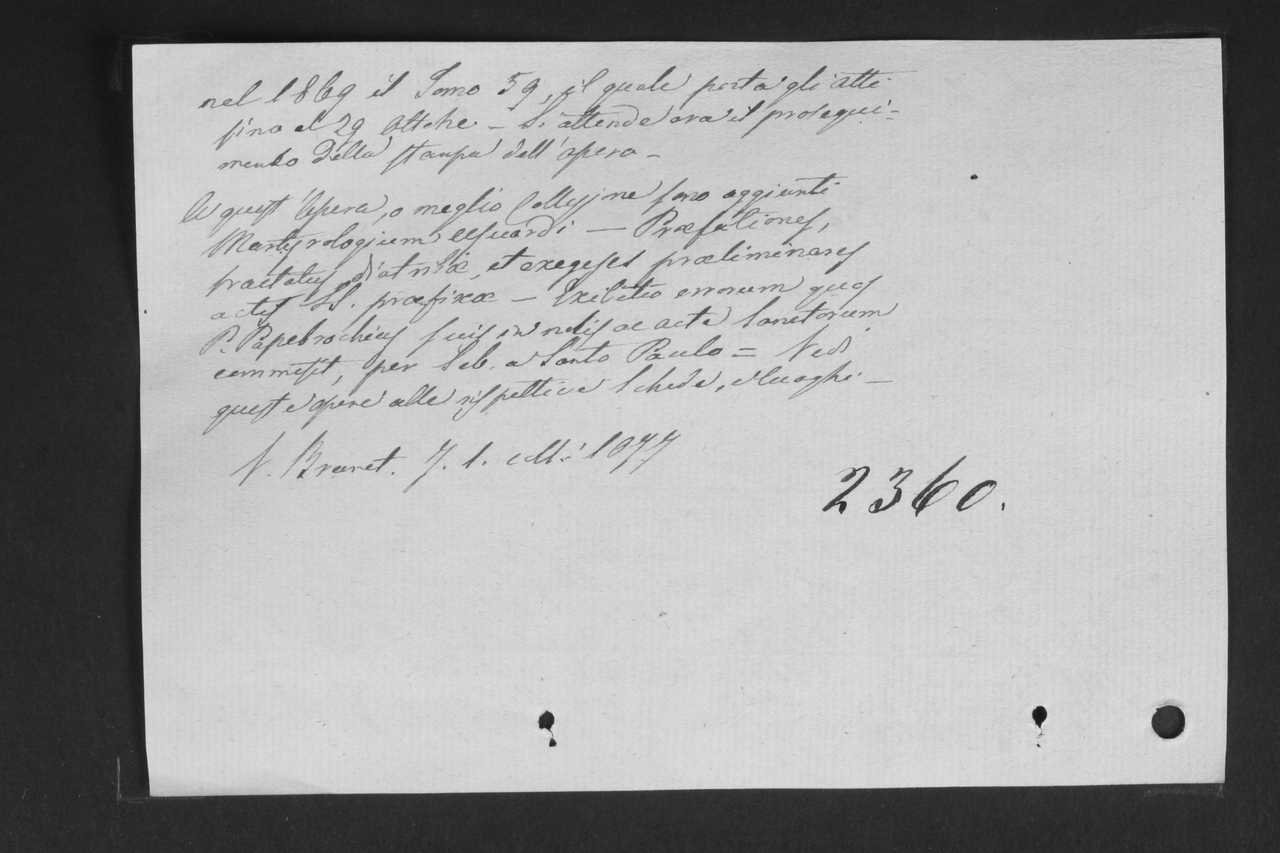 nel 1869 il Tomo 59, il quale porta gli atti
fino al 29 Ottobre – Si attende ora il prosegui=
mento della stampa dell'opera –
A quest'opera, o meglio Collezione sono aggiunti
Martyrologium Usuardi – Præfationes,
tractatus, diatribæ, et exegeses præliminares
actis SS. præfixæ – Exibitio errorum quos
P. Papebrochius suis in notis ac acta Sanctorum
commisit, per Seb. a Sancto Paulo = Vedi
queste opere alle rispettive Schede, e luoghi –
V. Brunet. T. 1.
2360.